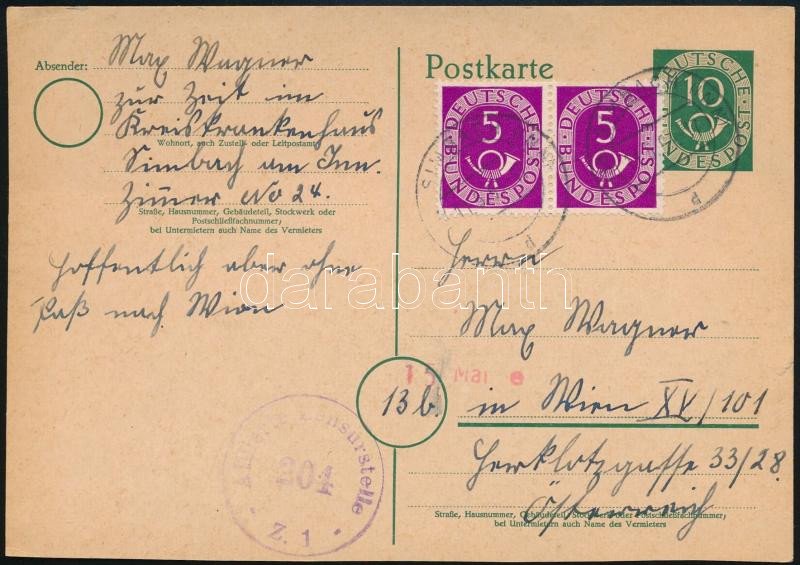 Absender: Max Wagner
zur Zeit im
Kreiskrankenhaus
Wohnort, auch Zustell- oder Leitpostamt
Simbach am Inn.
Zimmer No 24.
Straße, Hausnummer, Gebäudeteil, Stockwerk oder
Postschließfachnummer;
bei Untermietern auch Name des Vermieters
hoffentlich aber ohne
Paß nach Wien
Alliierte Zensurstelle
204
· Z. 1 ·
Postkarte
DEUTSCHE
5
BUNDESPOST
DEUTSCHE
5
BUNDESPOST
DEUTSCHE
10
BUNDESPOST
p
p
darabanth
Herrn
Max Wagner
15 Mai
13b
in Wien XV/101
Herklotzgasse 33/28.
Österreich
Straße, Hausnummer, Gebäudeteil, Stockwerk oder Postschließfachnummer;
bei Untermietern auch Name des Vermieters